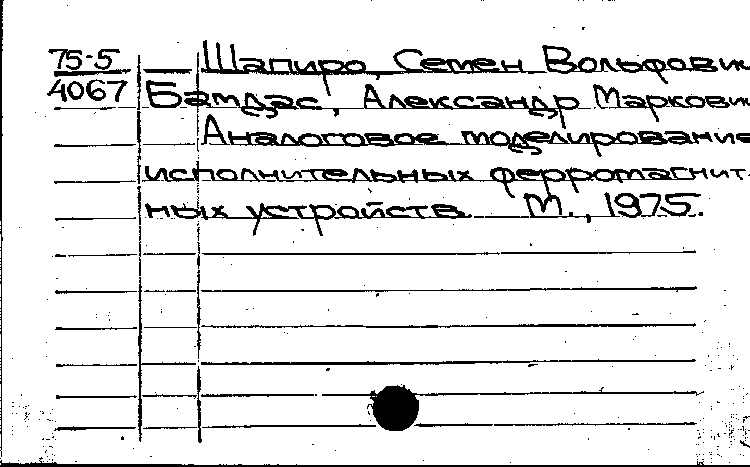 75-5 Шапиро, Семен Вольфович
4067 Бамдас, Александр Маркович
Аналоговое моделирование
исполнительных ферромагнит-
ных устройств. М., 1975.